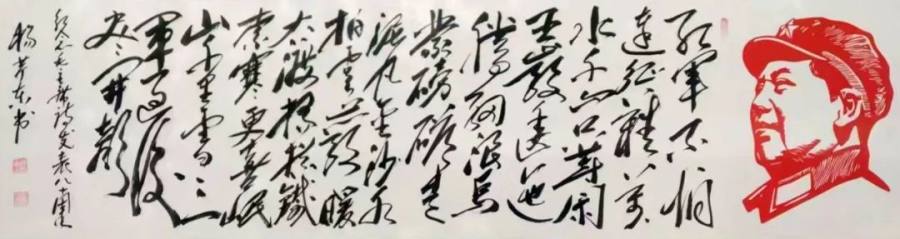 红军不怕
远征难万
水千山只等闲
五岭逶迤
腾细浪乌
蒙磅礴走
泥丸金沙水
拍云崖暖
大渡桥横铁
索寒更喜岷
山千里雪三
军过后
尽开颜
纪念毛主席诗发表八十周年
杨书